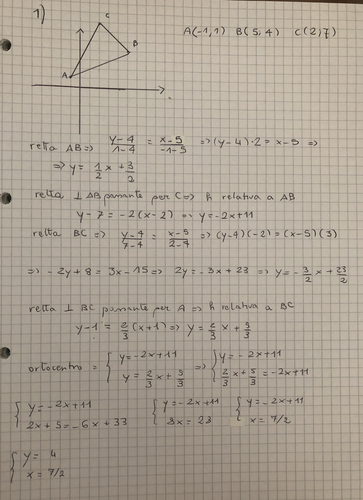 1)
C
B
A
A(-1,1) B(5;4) C(2;7)
retta AB => (y-4)/(1-4) = (x-5)/(-1-5) => (y-4)·2 = x-5 =>
=> y = 1/2 x + 3/2
retta ⊥ AB passante per C => h relativa a AB
y-7 = -2(x-2) => y = -2x+11
retta BC => (y-4)/(7-4) = (x-5)/(2-4) => (y-4)(-2) = (x-5)(3)
=> -2y+8 = 3x-15 => 2y = -3x+23 => y = -3/2 x + 23/2
retta ⊥ BC passante per A => h relativa a BC
y-1 = 2/3 (x+1) => y = 2/3 x + 5/3
ortocentro = { y = -2x+11 => { y = -2x+11
y = 2/3 x + 5/3 2/3 x + 5/3 = -2x+11
{ y = -2x+11 { y = -2x+11 { y = -2x+11
2x+5 = -6x+33 8x = 28 x = 7/2
{ y = 4
x = 7/2